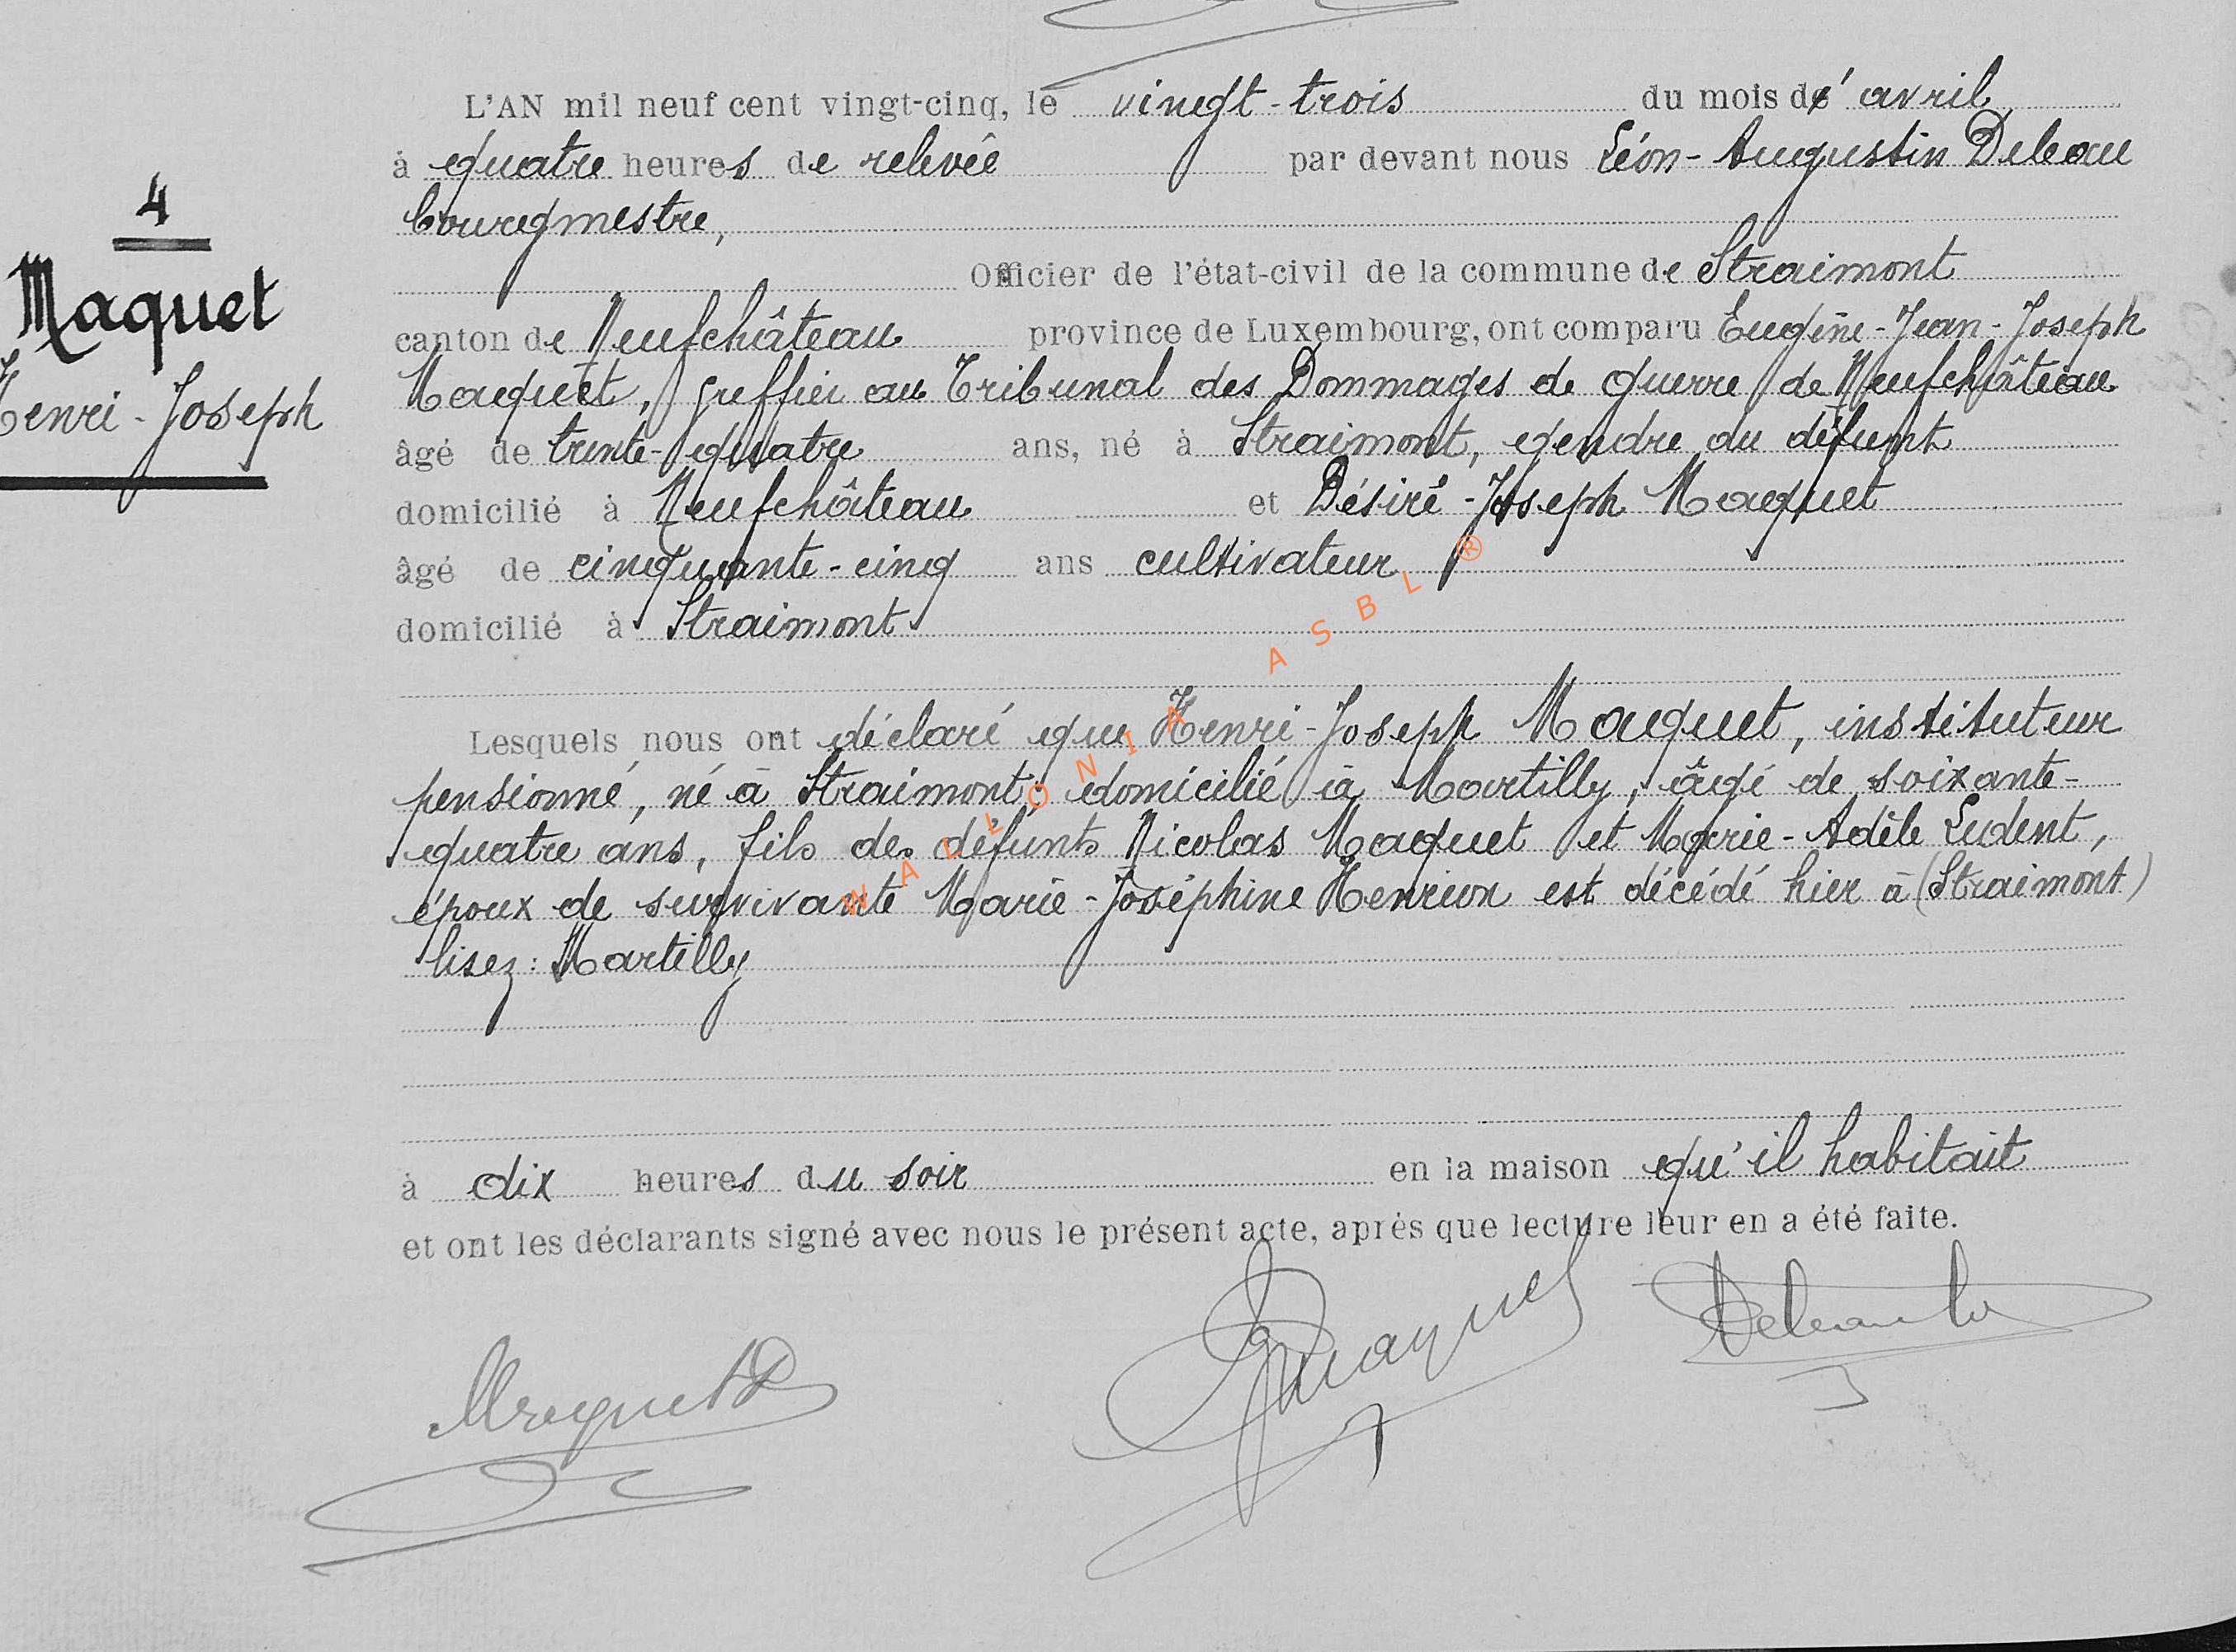 L'AN mil neuf cent vingt-cinq, le vingt-trois du mois d'avril
à quatre heures de relevée par devant nous Léon-Augustin Debeau
bourgmestre,
4
Officier de l'état-civil de la commune de Straimont
Maquet
canton de Neufchâteau province de Luxembourg, ont comparu Eugène-Jean-Joseph
Henri-Joseph
Maquet, greffier au Tribunal des Dommages de guerre de Neufchâteau
âgé de trente-quatre ans, né à Straimont, gendre du défunt
domicilié à Neufchâteau et Désiré-Joseph Maquet
âgé de cinquante-cinq ans cultivateur
domicilié à Straimont
WALLONIA ASBL ®
Lesquels nous ont déclaré que Henri-Joseph Maquet, instituteur
pensionné, né à Straimont, domicilié à Martilly, âgé de soixante-
quatre ans, fils des défunts Nicolas Maquet et Marie-Adèle Ludent,
époux de survivante Marie-Joséphine Henrion est décédé hier à (Straimont)
lisez: Martilly
à dix heures du soir en la maison qu'il habitait
et ont les déclarants signé avec nous le présent acte, après que lecture leur en a été faite.
Maquet D
Maquet